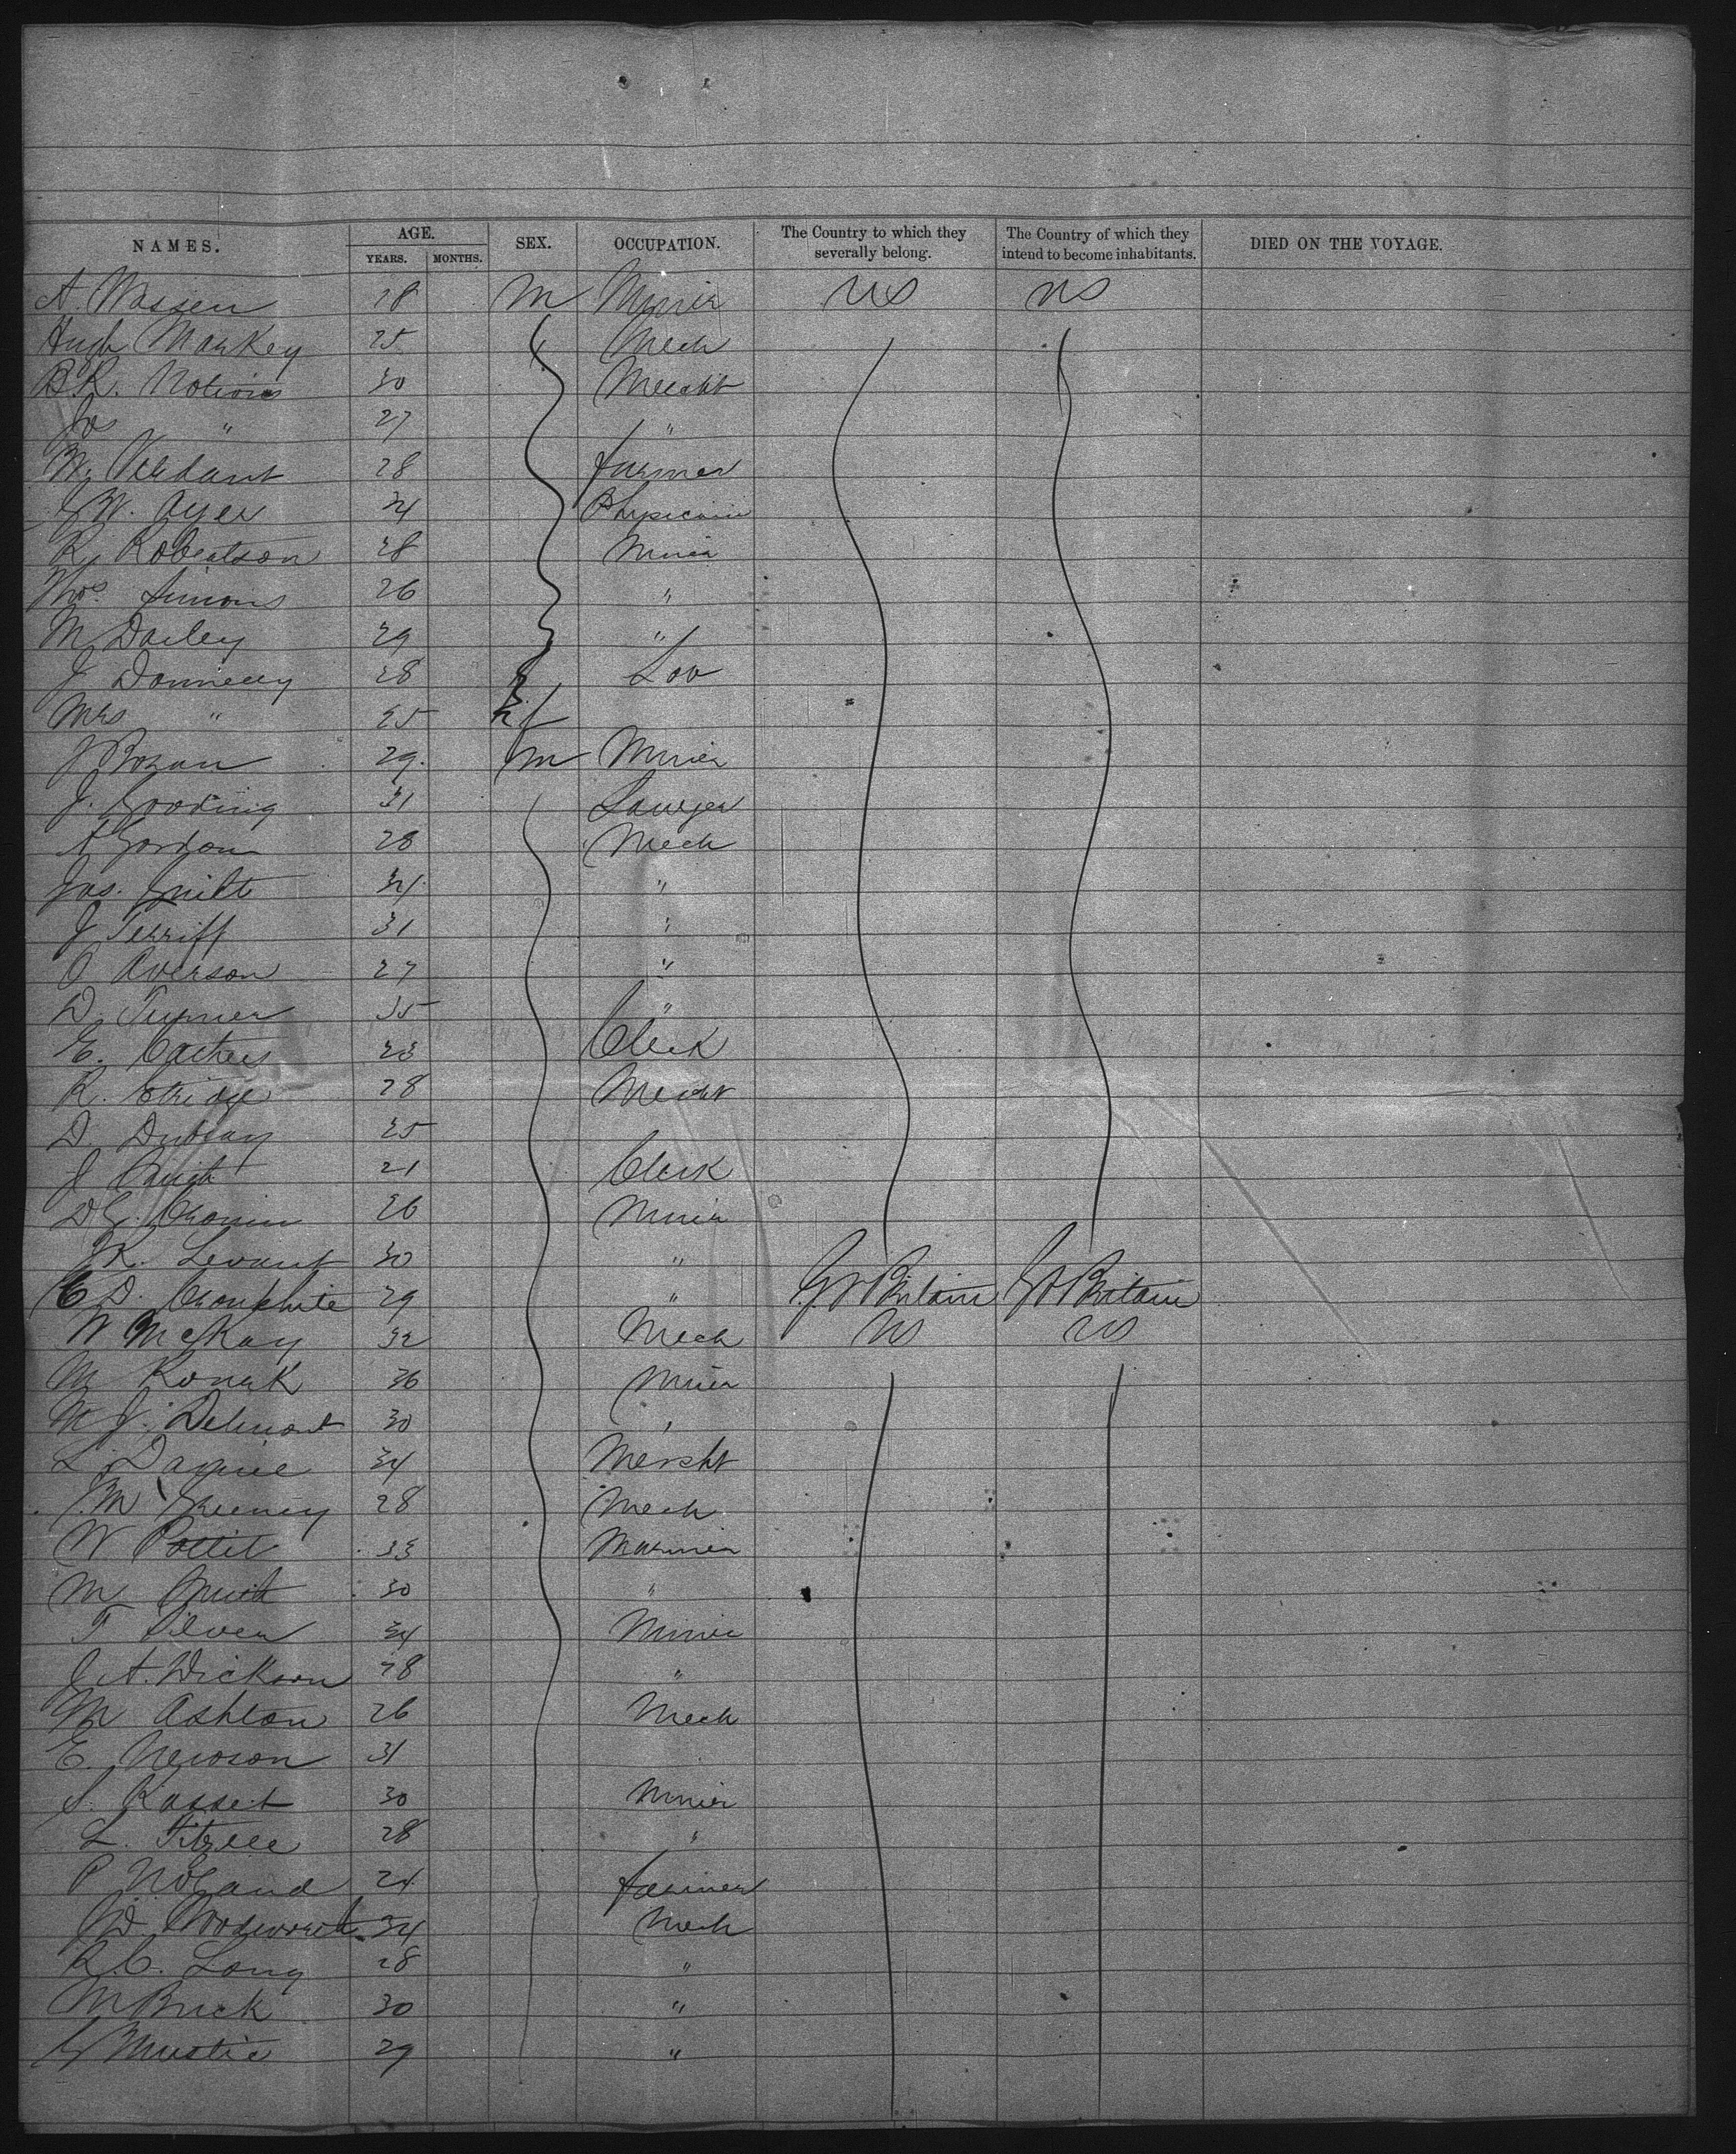 NAMES. AGE. SEX. OCCUPATION. The Country to which they severally belong. The Country of which they intend to become inhabitants. DIED ON THE VOYAGE.
YEARS. MONTHS.
A. Wassen 28 M Miner US US
Hugh Markey 25 Mech
B.R. Notions 30 Mercht
Jos " 27 "
W. Verdant 28 farmer
J W. Ayer 34 Physician
R. Robertson 28 Miner
Thos. Simons 26 "
M Dailey 29 "
J Donnelly 28 Lab
Mrs " 25 f
J Bozan 29 m Miner
J. Gooding 31 Lawyer
A Gordon 28 Mech
Jas. 34 "
J Terriff 31 "
O Averson 27 "
D. Turner 35 "
E. 23 Clerk
R. Etridge 28 Mercht
D. 25
J 21 Clerk
D G. Cronin 26 Miner
J K. Levant 30 "
C D. Cronkhite 29 " Gt Britain Gt Britain
W McKay 32 Mech US US
M 36 Miner
M J. Delmont 30 "
L. 34 Mercht
M Sheeney 28 Mech
W Pottit 33 Mariner
M Smith 30 "
T Silver 34 Miner
J A. Dickson 28 "
M Ashton 26 Mech
E. Newson 31
S. Kasset 30 Miner
L. 28 "
P Noland 24 farmer
J D Woodworth 34 Mech
R. C. Long 28 "
M Brick 30 "
29 "